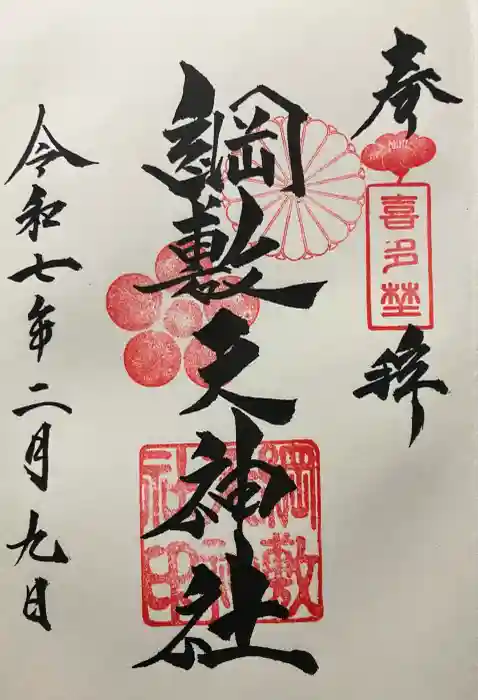 奉拝
喜多埜
綱敷天神社
綱敷天神社印
令和七年二月九日